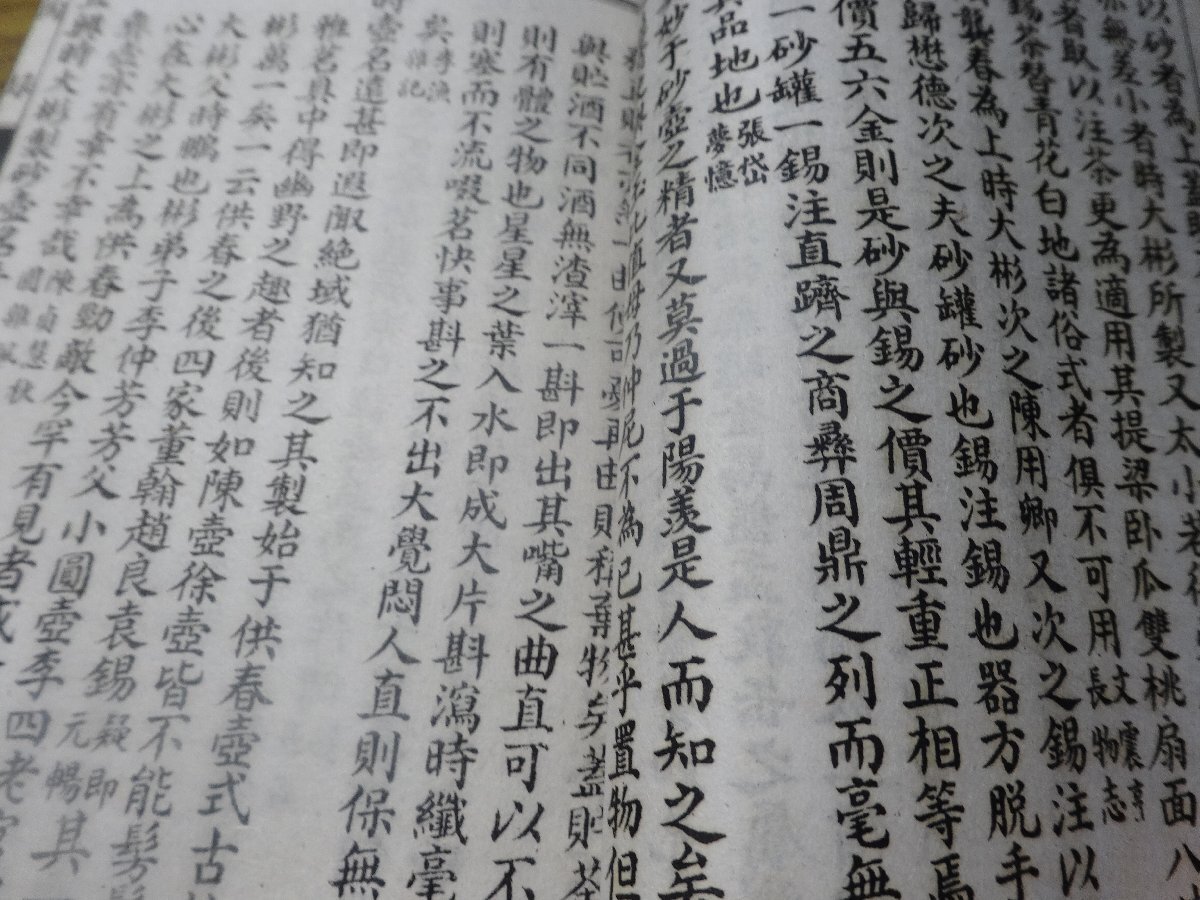 以砂者為上蓋既
茶無差小者時大彬所製又太小若
者取以注茶更為適用其提梁臥瓜雙桃扇面八
錫茶替青花白地諸俗式者俱不可用長物志文震亨
龔春為上時大彬次之陳用卿又次之錫注以
歸懋德次之夫砂罐砂也錫注錫也器方脫手
價五六金則是砂與錫之價其輕重正相等焉
一砂罐一錫注直躋之商彝周鼎之列而毫無
其品地也張岱夢憶
妙于砂壺之精者又莫過于陽羨是人而知之矣
乃仲尼不為已甚乎置物但
再曲矣蓋貯茶
與貯酒不同酒無渣滓一斟即出其嘴之曲直可以不
則有體之物也星星之葉入水即成大片斟瀉時纖毫
則塞而不流啜茗快事斟之不出大覺悶人直則保無
矣李漁雜記
時壺名遠甚即遐陬絕域猶知之其製始于供春壺式古
雅茗具中得幽野之趣者後則如陳壺徐壺皆不能髣髴
彬萬一矣一云供春之後四家董翰趙良袁錫疑即元暢其
大彬父時鵬也彬弟子李仲芳芳父小圓壺李四老官
心在大彬之上為供春勁敵今罕有見者或
幸不幸哉陳貞慧秋園雜佩
時大彬製砂壺